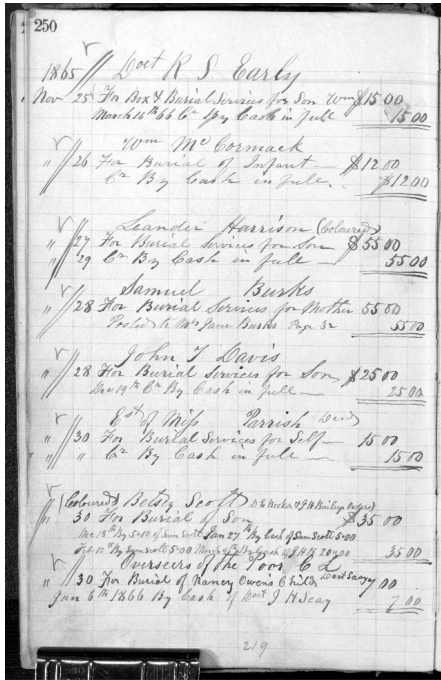 250
1865 Doct R S Early
Nov 25 For Box & Burial Services for Son Wm $15 00
March 16th 66 Cr By Cash in full 15 00
Wm McCormack
" 26 For Burial of Infant — $12 00
Cr By Cash in full. $12 00
Leander Harrison (Coloured)
" 27 For Burial Services for Son $55 00
" 29 Cr By Cash in full — 55 00
Samuel Burks
" 28 For Burial Services for Mother 55 00
Posted to Mrs Jane Burks Page 32 55 00
John T Davis
" 28 For Burial Services for Son $25 00
Dec 19th Cr By Cash in full — 25 00
Est of Miss Parrish Decd
" 30 For Burial Services for Self — 15 00
" " Cr By Cash in full — 15 00
(Coloured) Betsie Scott
" 30 For Burial of Son $35 00
Dec 18th By 5.00 of Sam Scott Jan 27th By Cash of Sam Scott 5.00
Feb 12th By Sam Scott 5.00 March By Cash of J H 20.00 35 00
Overseers of the Poor C L
" 30 For Burial of Nancy Owens Child Doct Seay 7 00
Jan 6th 1866 By Cash of Doct J H Seay 7 00
219